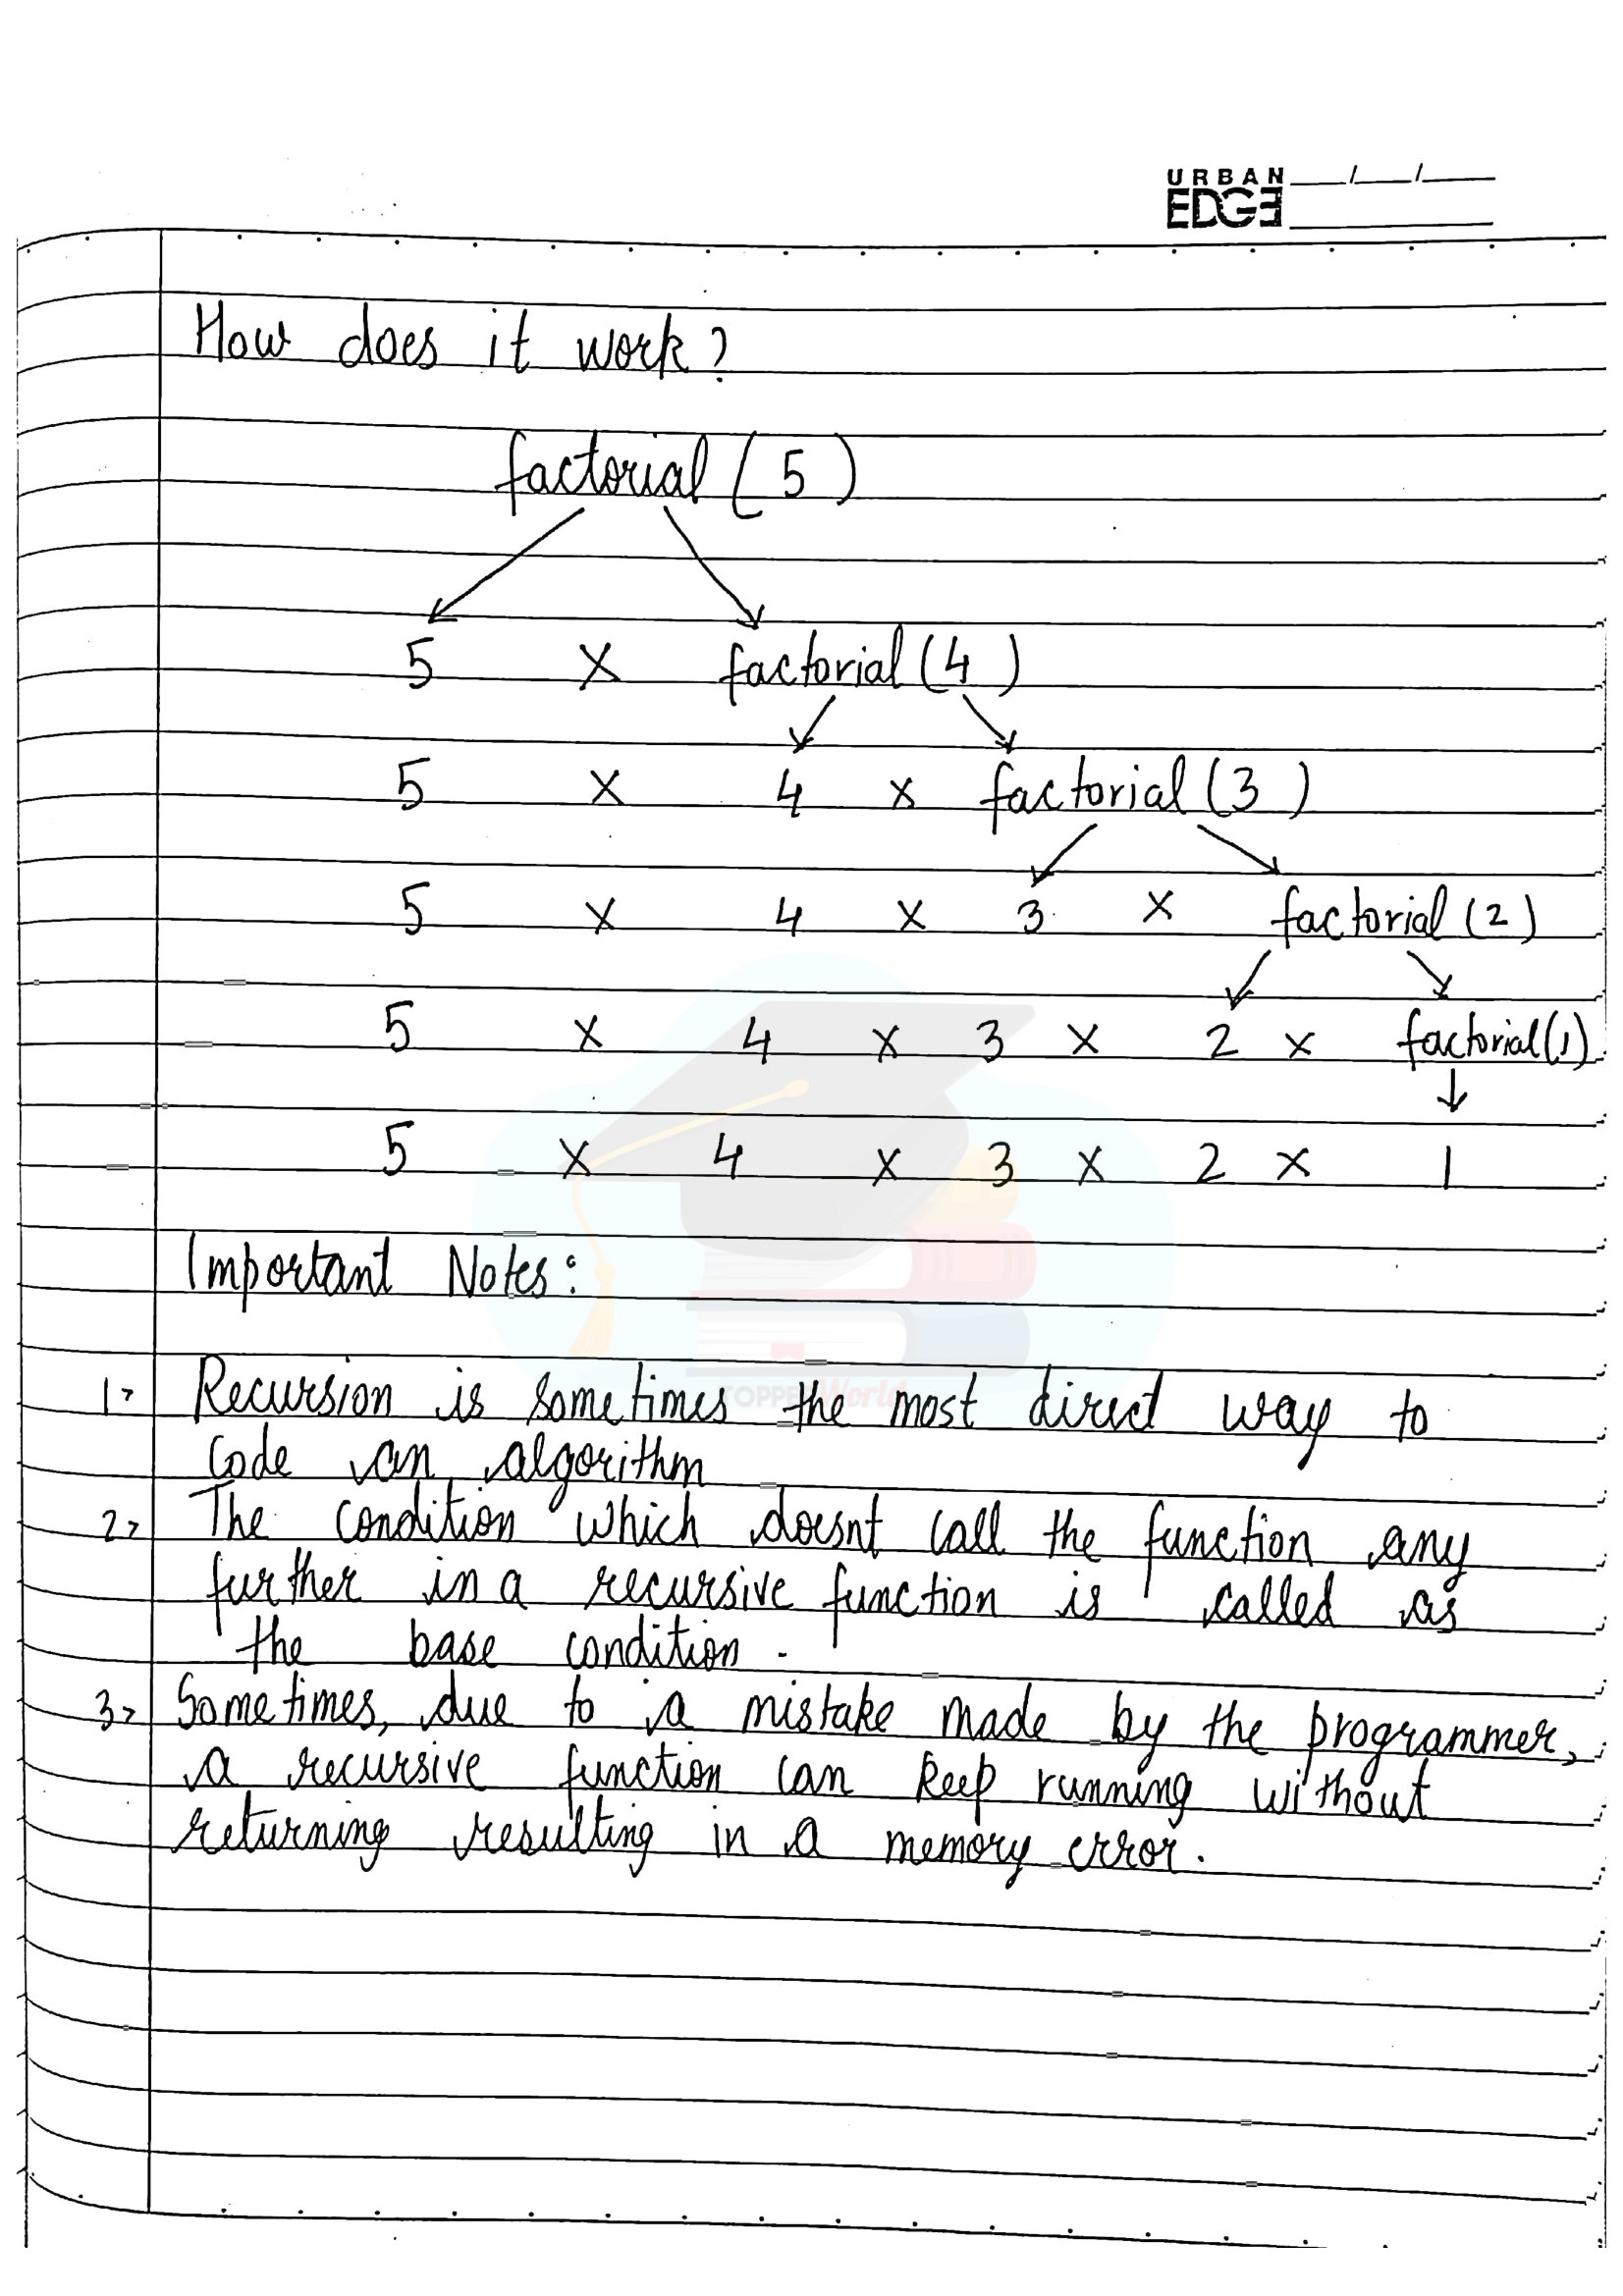 URBAN
EDGE
How does it work?
factorial ( 5 )
5 x factorial (4 )
5 x 4 x factorial (3 )
5 x 4 x 3 x factorial (2)
5 x 4 x 3 x 2 x factorial(1)
5 x 4 x 3 x 2 x 1
Important Notes:
1> Recursion is sometimes the most direct way to
code an algorithm
2> The condition which doesnt call the function any
further in a recursive function is called as
the base condition.
3> Sometimes, due to a mistake made by the programmer,
a recursive function can keep running without
returning resulting in a memory error.
TOPPERWorld